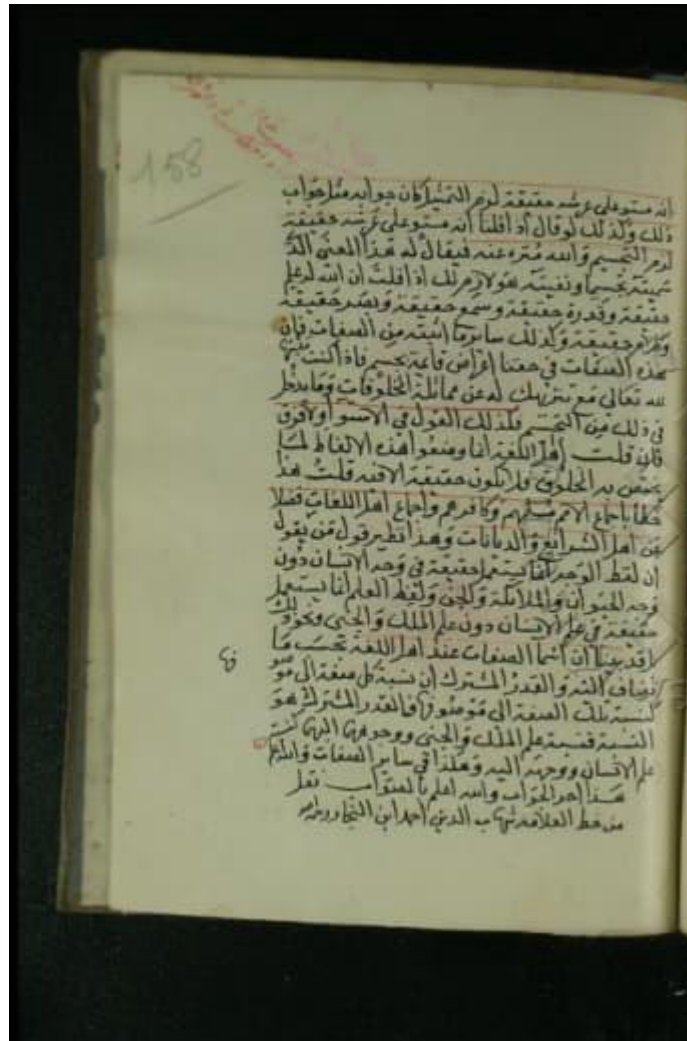 158
انه مستو على عرشه حقيقة لزم التمثيل كان جوابه مثل جواب
ذلك وكذلك لو قال اذا قلنا انه مستو على عرشه حقيقة
لزم التجسيم والله منزه عنه فيقال له هذا المعنى الذى
سميته تجسيما ونفيته هو لازم لك اذا قلت ان الله له علم
حقيقة وقدرة حقيقة وسمع حقيقة وبصر حقيقة
وكلام حقيقة وكذلك ساير ما اثبته من الصفات فان
هذه الصفات فى حقنا اعراض قايمة بجسم فاذا كنت تثبتها
لله تعالى مع تنزيهك له عن مماثلة المخلوقات وما يدخل
فى ذلك من التجسيم فكذلك القول فى الاستوا ولا فرق
فان قلت اهل اللغة انما وضعوا هذه الالفاظ لما
يختص به المخلوق فلا تكون حقيقة الا فيه قلت هذا
خطا باجماع الامم مسلمهم وكافرهم واجماع اهل اللغات فضلا
عن اهل الشرايع والديانات وهذا نظير قول من يقول
ان لفظ الوجه انما يستعمل حقيقة فى وجه الانسان دون
وجه الحيوان والملائكة والجن ولفظ العلم انما يستعمل
حقيقة فى علم الانسان دون علم الملك والجنى ونحو ذلك
قد بينا ان اسما الصفات عند اهل اللغة بحسب ما
تضاف اليه والقدر المشترك ان نسبة كل صفة الى
كنسبة تلك الصفة الى موصوفها فالقدر المشترك هو
النسبة فنسبة علم الملك والجنى ووجوههما اليهما كنسبة
علم الانسان ووجهه اليه وهكذا فى ساير الصفات والله اعلم
هذا اخر الجواب والله اعلم بالصواب نقل
من خط العلامة شهاب الدين احمد ابن النجار